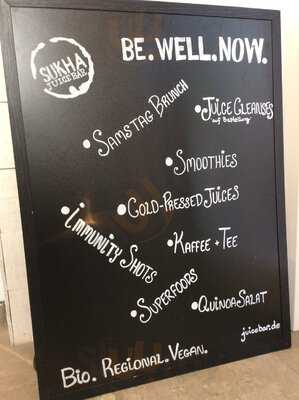 SUKHA
JUICE BAR
BE.WELL.NOW.
•SAMSTAG BRUNCH
•JUICE CLEANSES
auf Bestellung
•SMOOTHIES
•COLD-PRESSED JUICES
•IMMUNITY SHOTS
•KAFFEE + TEE
•SUPERFOODS
•QUINOA SALAT
juicebar.de
BIO. REGIONAL. VEGAN.